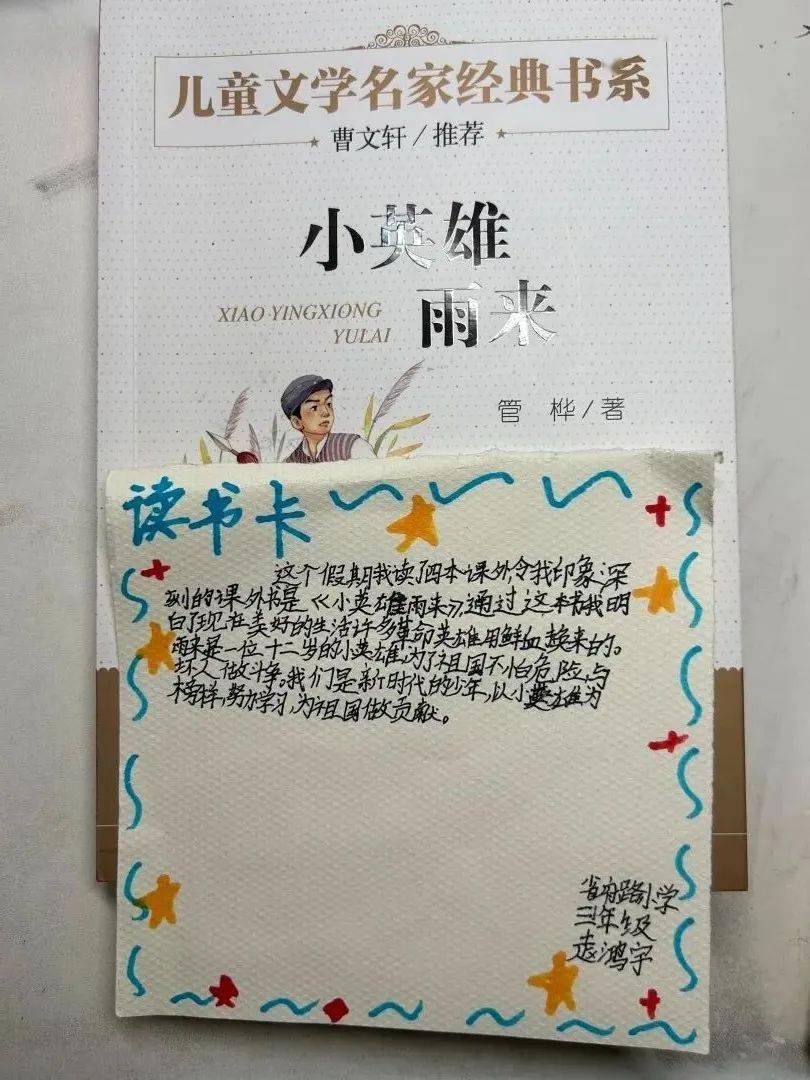 儿童文学名家经典书系
曹文轩/推荐
小英雄
XIAO YINGXIONG
YULAI
雨来
管 桦/著
读书卡
这个假期我读了四本课外,令我印象深
刻的课外书是《小英雄雨来》,通过这本书我明
白了现在美好的生活许多革命英雄用鲜血换来的。
雨来是一位十二岁的小英雄,为了祖国不怕危险,与
坏人做斗争。我们是新时代的少年,以小英雄为
榜样,努力学习,为祖国做贡献。
省府路小学
三年级
鸿宇